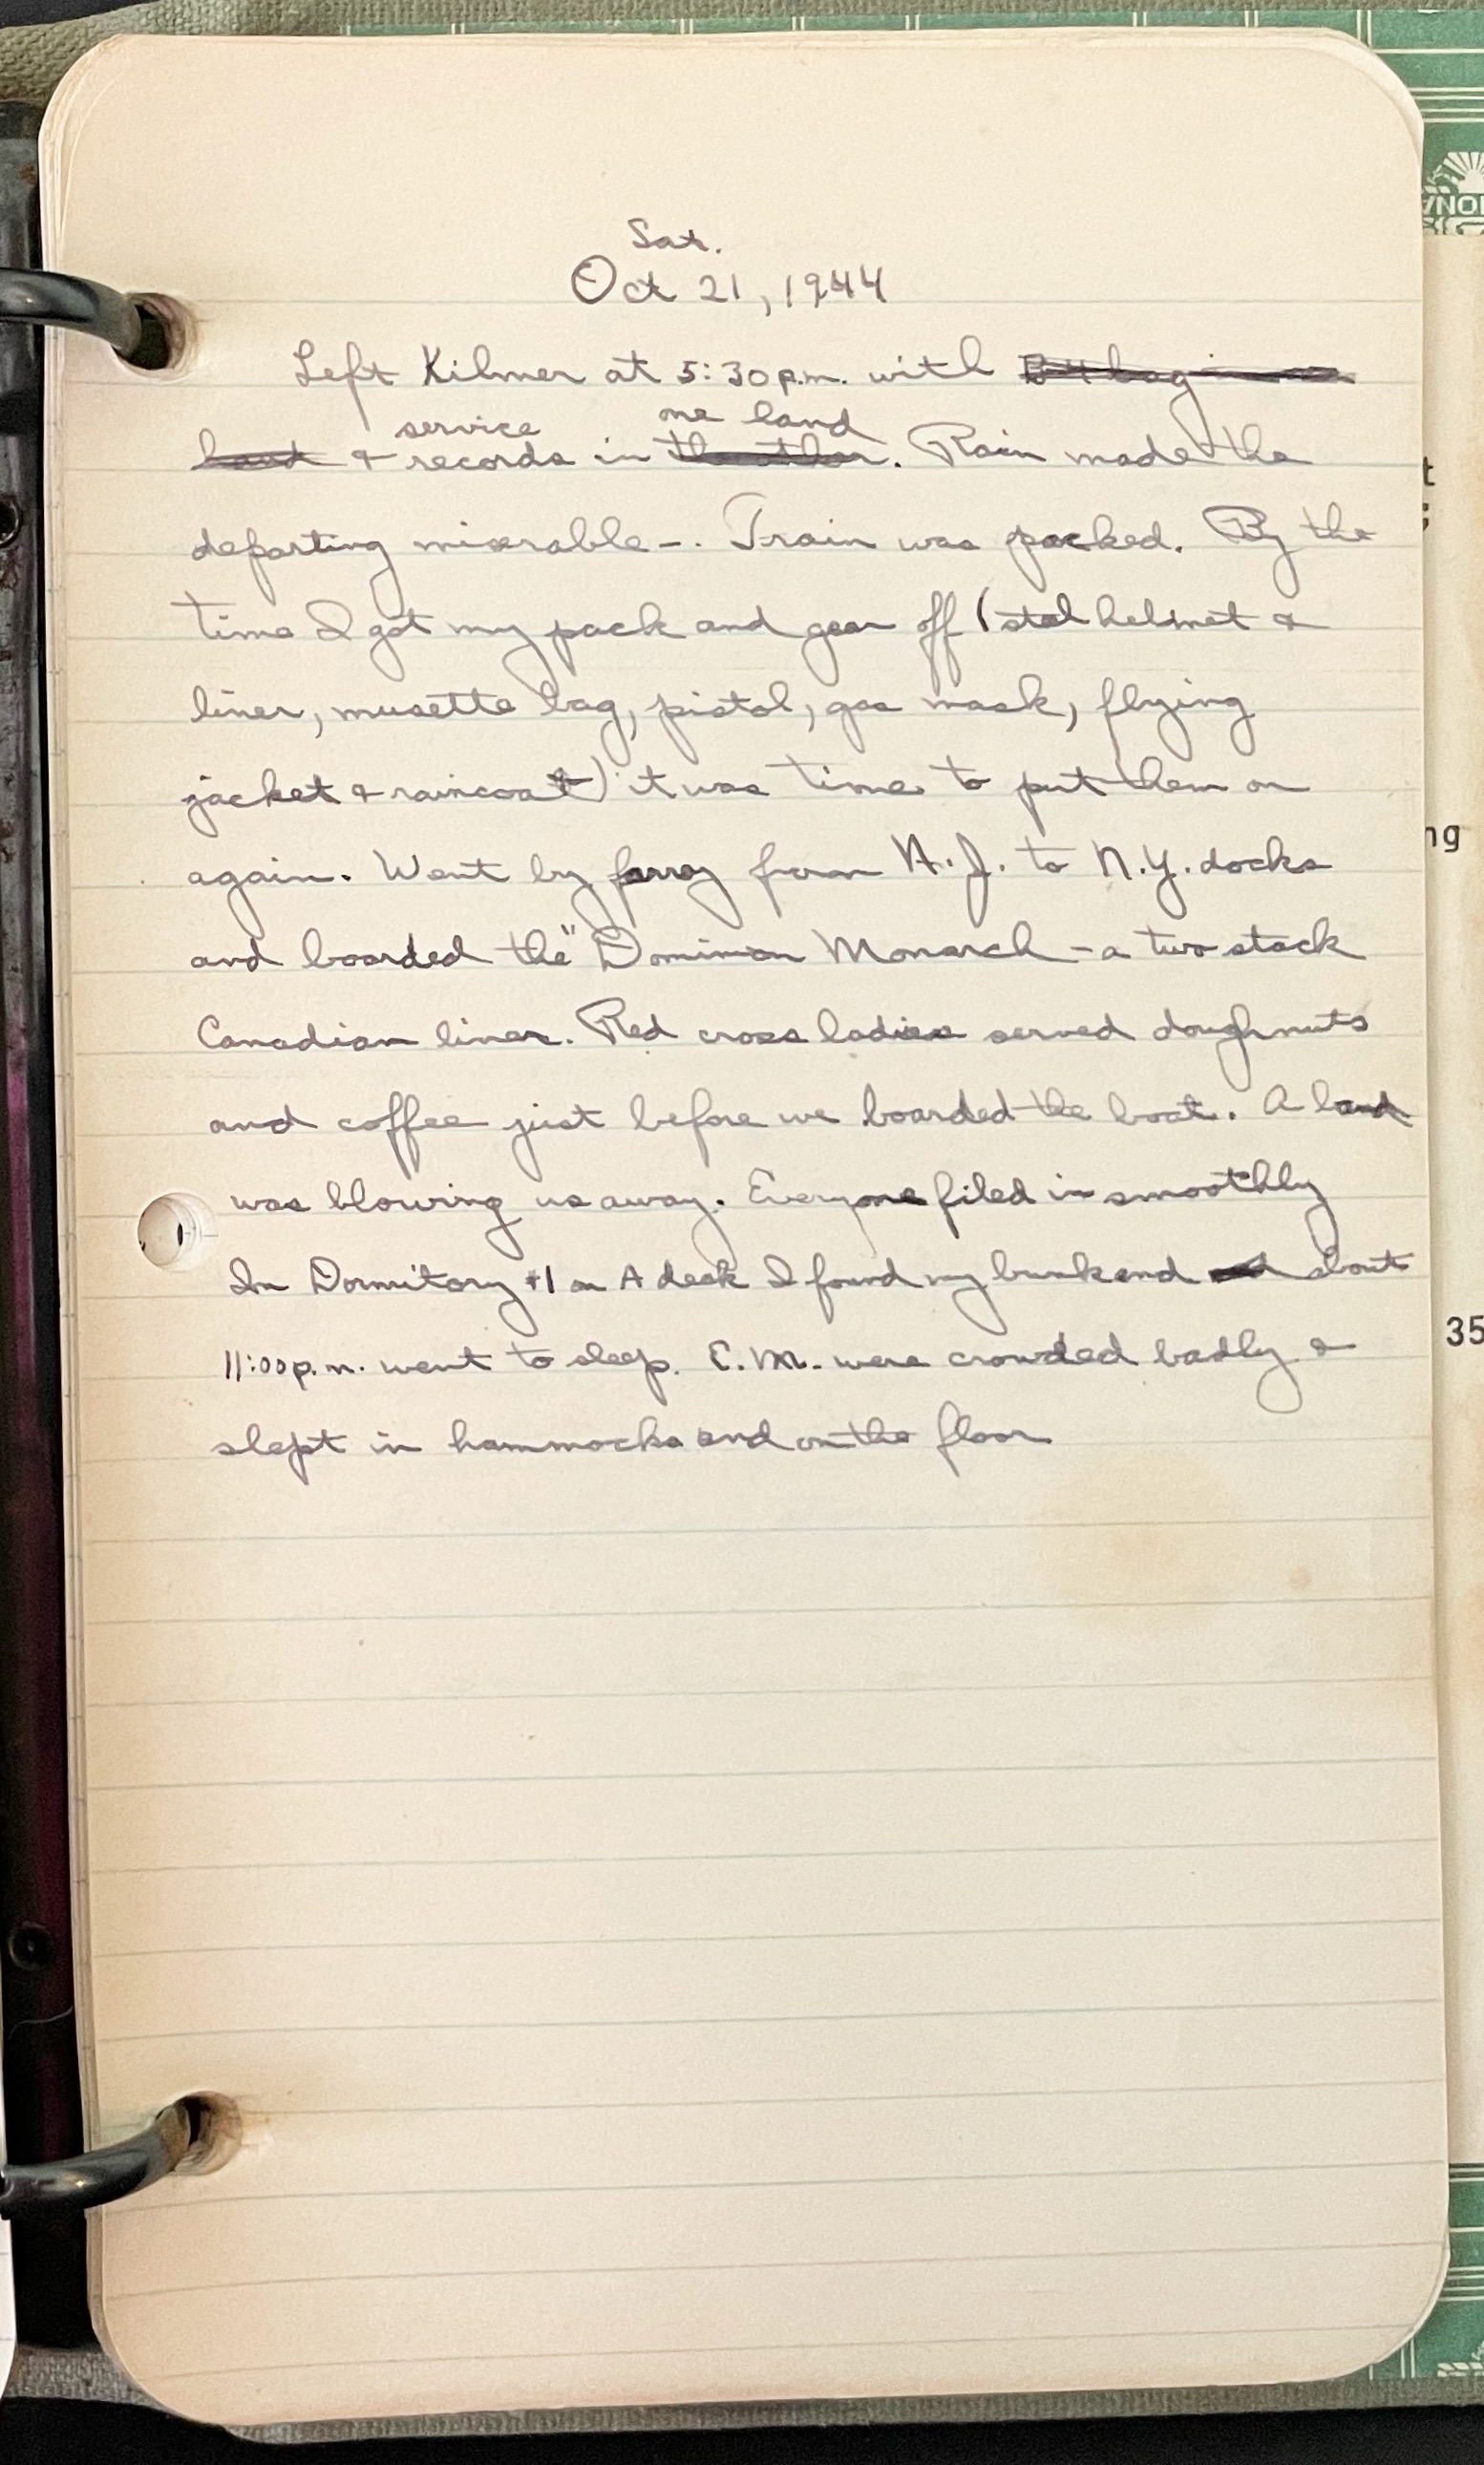 Sat.
Oct 21, 1944
Left Kilmer at 5:30 p.m. with B4 bag in one
hand & service records in the other one hand. Rain made the
departing miserable-. Train was packed. By the
time I got my pack and gear off (steel helmet &
liner, musette bag, pistol, gas mask, flying
jacket & raincoat) it was time to put them on
again. Went by ferry from N.J. to N.Y. docks
and boarded the "Dominion Monarch - a two stack
Canadian liner. Red cross ladies served doughnuts
and coffee just before we boarded the boat. A band
was blowing us away. Everyone filed in smoothly
In Dormitory #1 on A deck I found my bunk and about
11:00 p.m. went to sleep. E.M. were crowded badly &
slept in hammocks and on the floor
ONA
t
ng
35